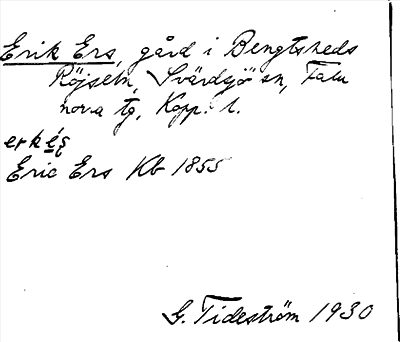 Erik Ers, gård i Bengtsheds
Röjseln, Svärdsjö sn, Falu
norra tg, Kopp. l.
Eric Ers Kb 1855
G. Tideström 1930